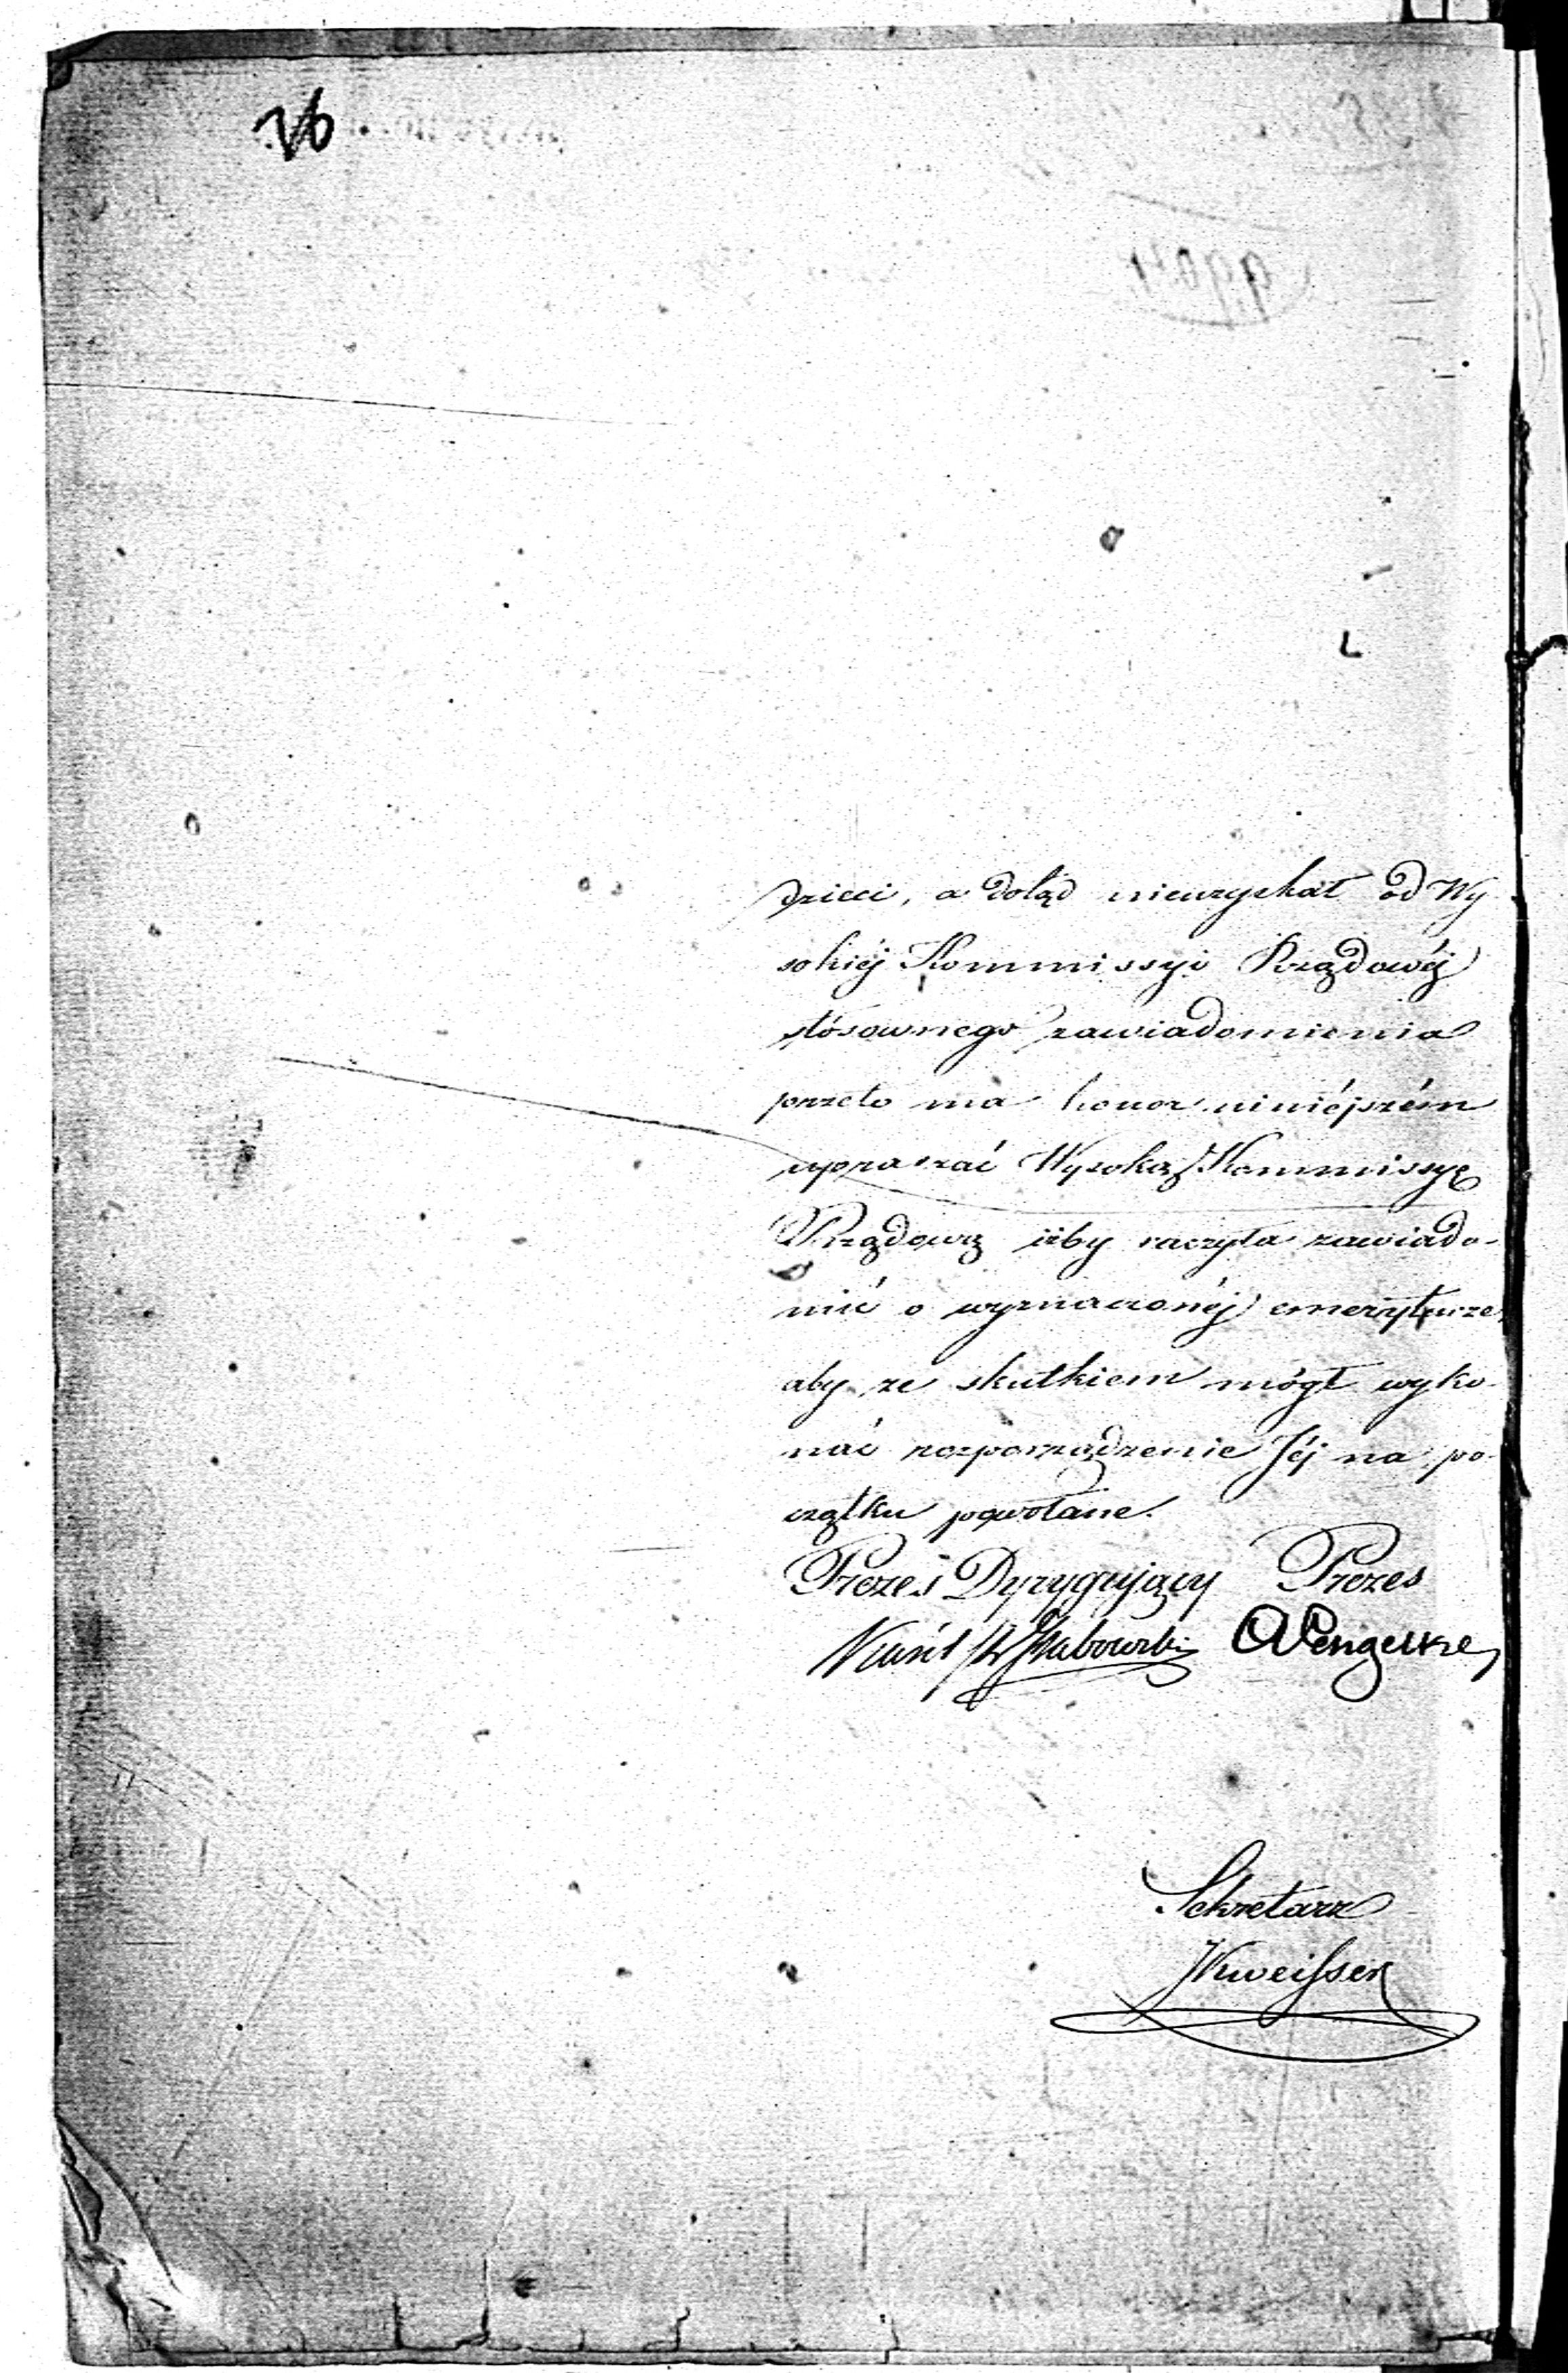 26
dzieci, a dotąd nieuzyskał od Wy
sokiéj Kommissyi Rządowéj
stósownego zawiadomienia
przeto ma honor niniéjszém
upraszać Wysoką Kommissyę
Rządową iżby raczyła zawiado-
mić o wyznaczonéj emeryturze,
aby ze skutkiem mógł wyko-
nać rozporządzenie Jéj na po-
czątku powołane.
Prezes Dyrygujący Prezes
Sekretarz